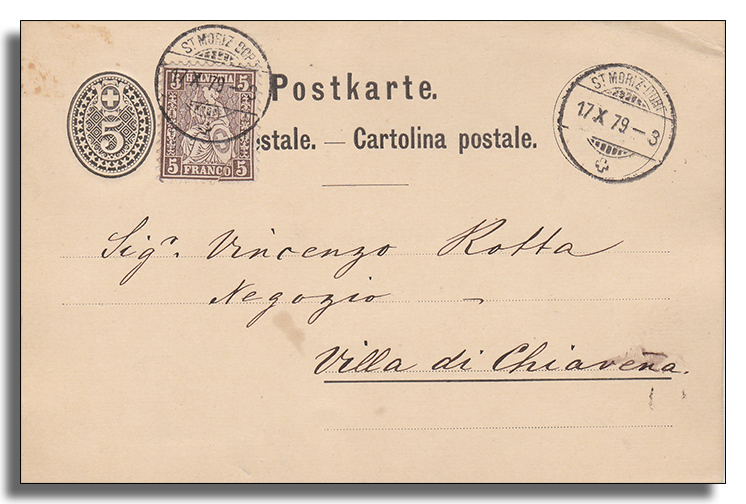 ST MORIZ-DORF
17. X 79 - 3
5
5 HELVETIA 5
5 FRANCO 5
Postkarte.
stale. — Cartolina postale.
ST MORIZ-DORF
17. X 79 - 3
Sigr. Vincenzo Rotta
Negozio —
Villa di Chiavena.